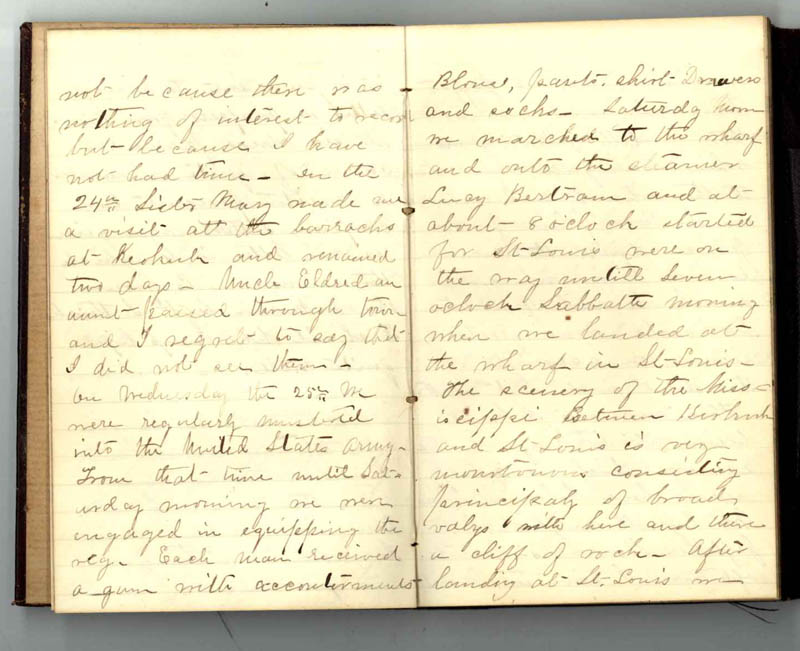 not because there was
nothing of interest to record
but because I have
not had time - on the
24th Sister Mary made me
a visit at the barracks
at Keokuk and remained
two days - Uncle Eldred an
aunt passed through town
and I regret to say that
I did not see them -
On Wednesday the 25th we
were regularly mustered
into the United States Army -
From that time until Sat-
urday morning we were
engaged in equipping the
reg. Each man received
a gun with accouterments
Blouse, pants. shirt Drawers
and socks - Saturday morn
we marched to the wharf
and onto the steamer
Lucy Bertram and at
about 8 oclock started
for St Louis were on
the way untill Seven
oclock Sabbath morning
when we landed at
the wharf in St Louis -
The scenery of the Miss-
iscippi Between Keokuk
and St Louis is very
monotonous consisting
principaly of broad
valys with here and there
a cliff of rock - After
landing at St. Louis we